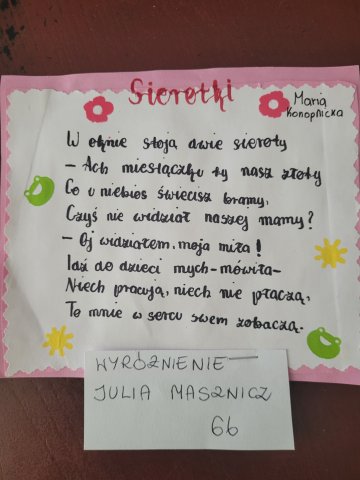 Sierotki
Maria
Konopnicka
W oknie stoją dwie sieroty
– Ach miesiączku ty nasz złoty
Co u niebios świecisz bramy,
Czyś nie widział naszej mamy?
– Oj widziałem, moja miła!
Idź do dzieci mych – mówiła –
Niech pracują, niech nie płaczą,
To mnie w sercu swem zobaczą.
WYRÓŻNIENIE
JULIA MASZNICZ
66